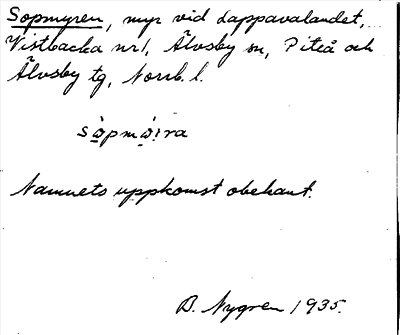 Sopmyren, myr vid Lappavalandet,
Vistbacka nr1, Älvsby sn, Piteå och
Älvsby tg, Norrb. l.
sɷ̀pmɷ̣ːra
Namnets uppkomst obekant.
B. Nygren 1935.